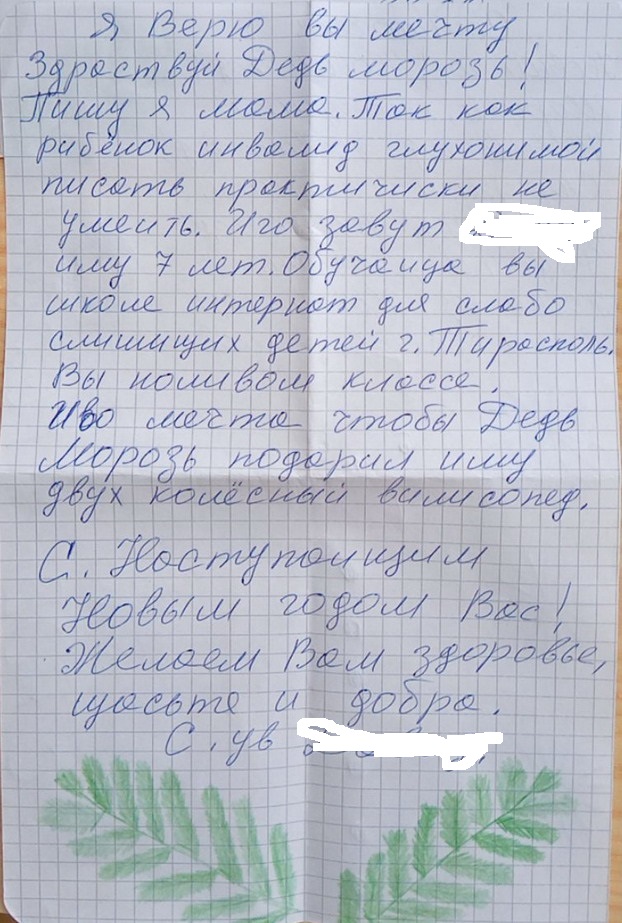 Я Верю вы мечту
Здраствуй Дедь морозь!
Пишу я мама. Так как
рибёнок инвалид глухонимой
писать практичиски не
умеить. Иго завут
иму 7 лет. Обучаица вы
школе интернат для слабо
слишищих детей г. Тирасполь.
Выноливом классе.
Иво мечта чтобы Дедь
Морозь подарил иму
двух колёсный вилисопед.
С. Наступающим
Новым годом Вас!
Желаем Вам здоровье,
щасьте и добра.
С. ув